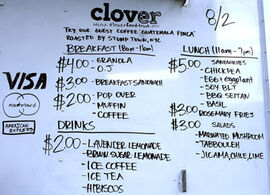 clover
8/2
TRY OUR GUEST COFFEE "GUATEMALA FINCA"
ROASTED BY STUMPTOWN, NYC
BREAKFAST (8am-11am)
$4.00 - GRANOLA
- O.J.
$3.00 - BREAKFAST SANDWICH
$2.00 - POP OVER
- MUFFIN
- COFFEE
DRINKS
$2.00 - LAVENDER LEMONADE
- BROWN SUGAR LEMONADE
- ICE COFFEE
- ICE TEA
- HIBISCUS
LUNCH (11am-7pm)
$5.00 SANDWICHES
- CHICKPEA
- EGG & EGGPLANT
- SOY BLT
- BBQ SEITAN
- BASIL
$3.00 ROSEMARY FRIES
$3.00 SALADS
- MARINATED MUSHROOM
- TABBOULEH
- JICAMA, CHILE, LIME
VISA
MasterCard
AMERICAN EXPRESS